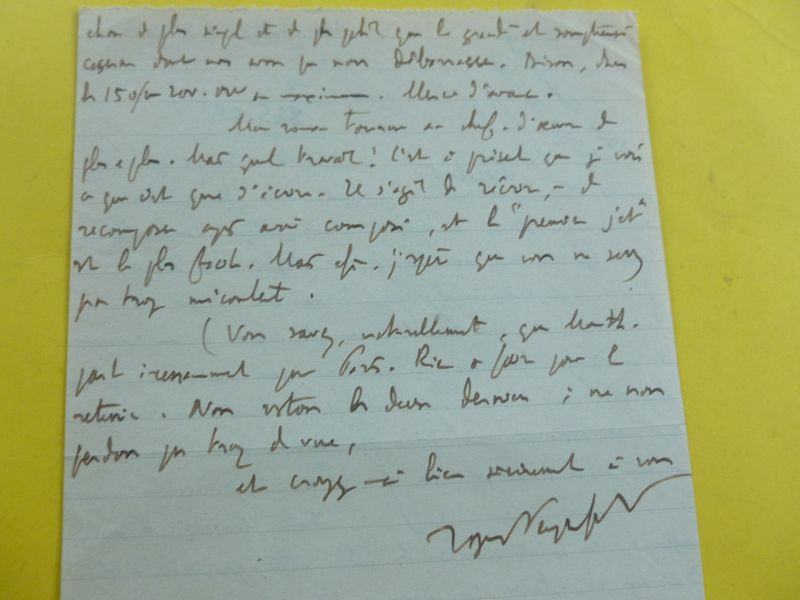 chose de plus simple et de plus petit que le grand et somptueux
dont nous avons pu nous débarrasser. Disons, dans
les 150 ou 200.000 au maximum. Merci d'avance.
Mon roman tourne au chef-d'œuvre de
plus en plus. Mais quel travail! C'est à présent que je vois
ce que c'est que d'écrire. Il s'agit de récrire, – de
recomposer après avoir composé, et le "premier jet"
est le plus facile. Mais enfin, j'espère que vous ne serez
pas trop mécontent.
(Vous savez, naturellement, que
part incessamment pour Paris. Rien à faire pour le
retenir. Nous restons les deux derniers; ne nous
perdons pas trop de vue,
et croyez-moi bien sincèrement à vous